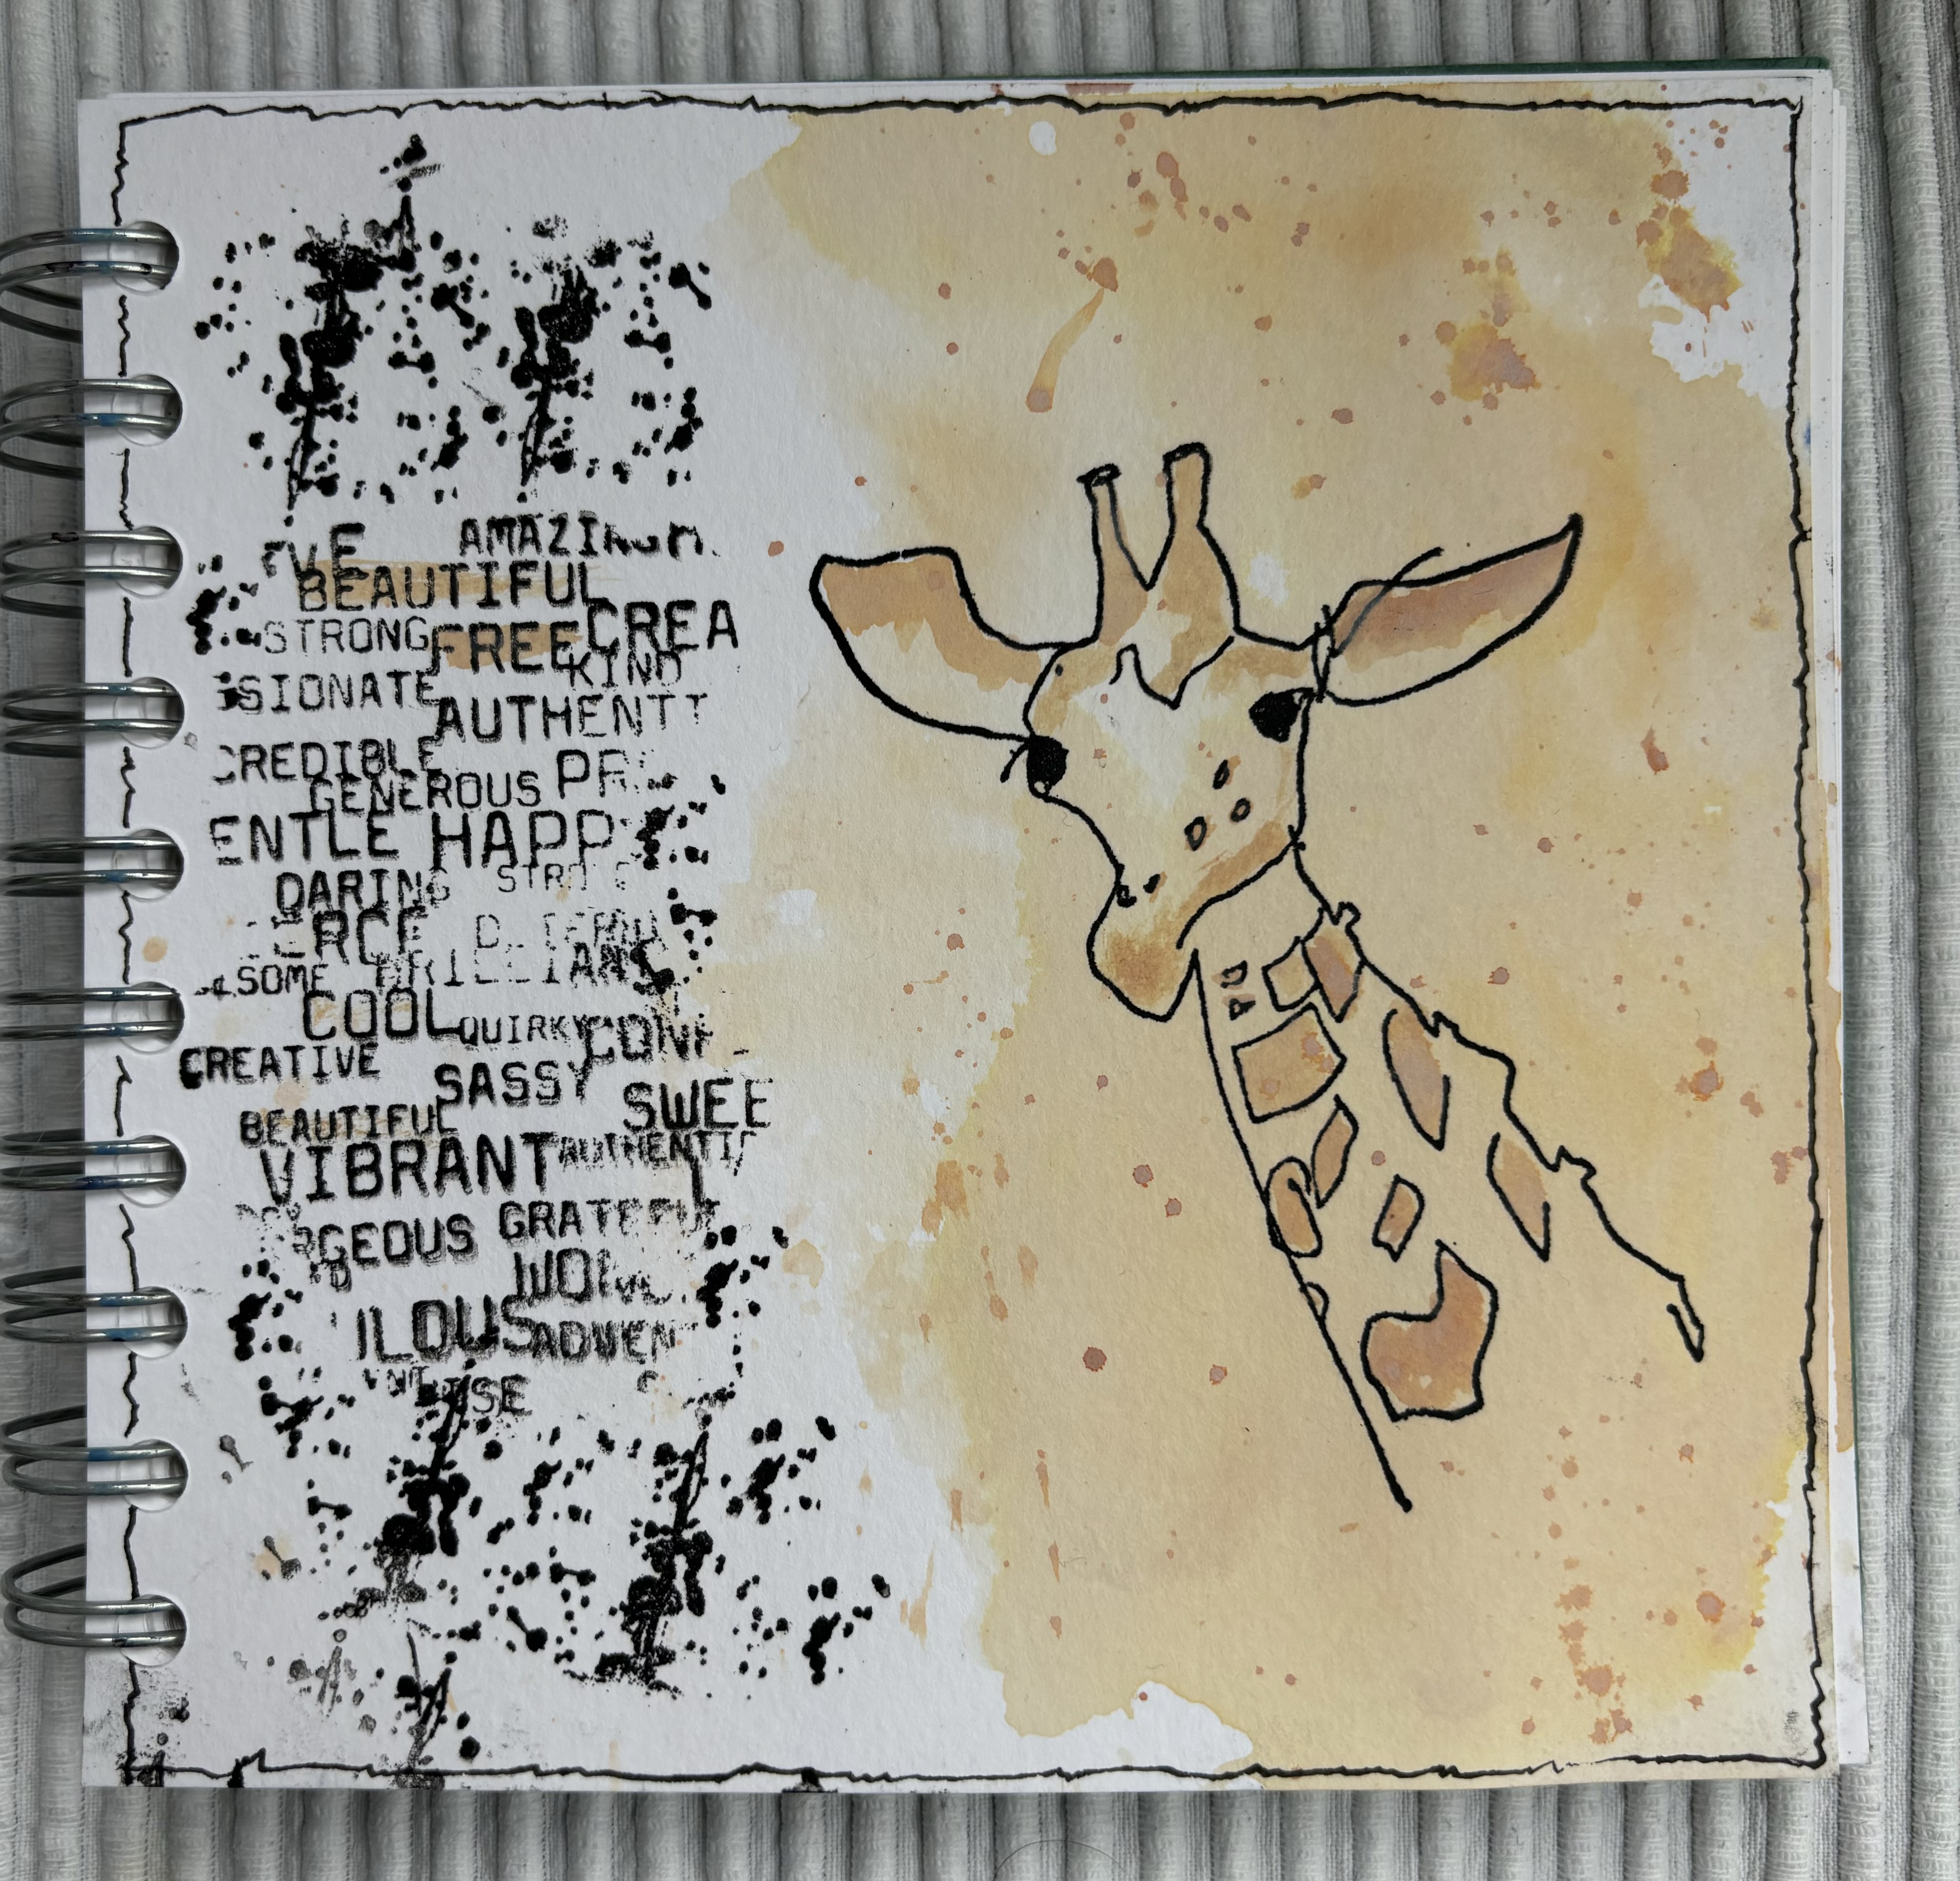 AMAZI
BEAUTIFUL
STRONG FREE CREA
KIND
SIONATE AUTHENT
CREDIBLE
GENEROUS PR
ENTLE HAPP
DARING STRO
ERCE
SOME BRILLIANT
COOL QUIRKY CONF
CREATIVE SASSY SWEE
BEAUTIFUL
VIBRANT AUTHENTI
GEOUS GRATEFUL
ILOUS ADVEN
SE